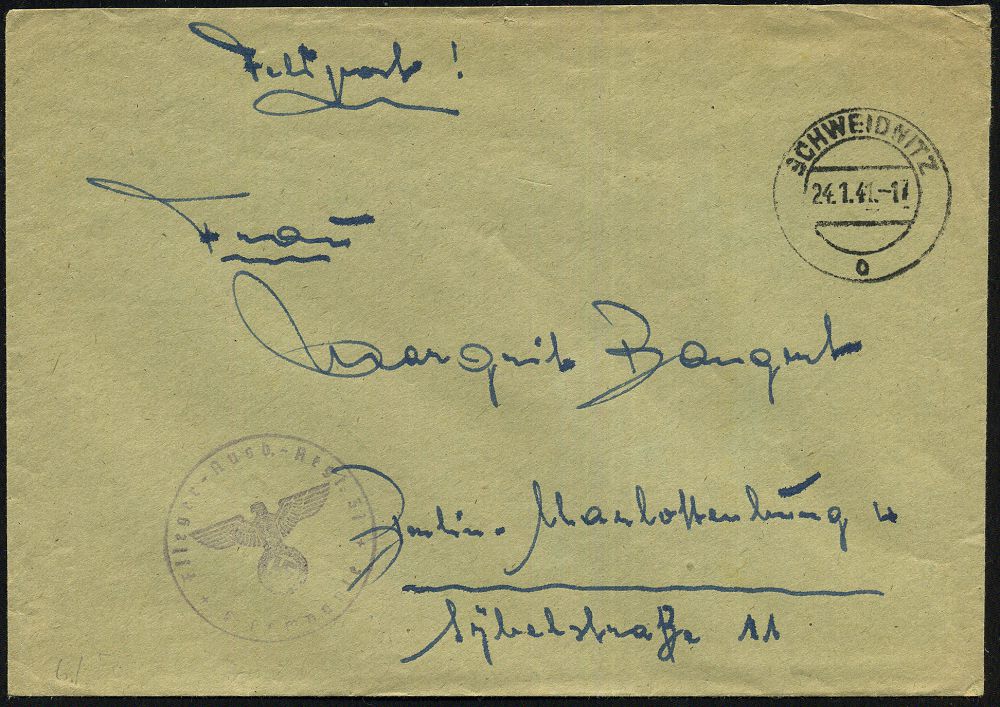 Feldpost!
SCHWEIDNITZ
24.1.41.-17
o
Frau
Margrit Bangert
Flieger-Ausb.-Regt. 
Berlin-Charlottenburg 4
Sybelstraße 11